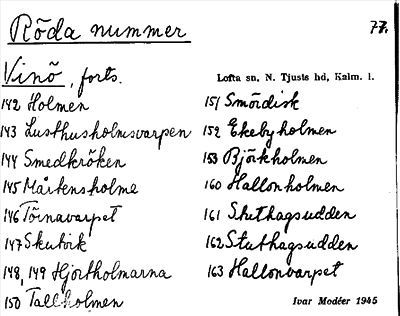 Röda nummer
77.
Vinö, forts.
Lofta sn, N. Tjusts hd, Kalm. l.
142 Holmen
143 Lusthusholmsvarpen
144 Smedkröken
145 Mårtensholme
146 Törnavarpet
147 Skutvik
148, 149 Hjortholmarna
150 Tallholmen
151 Smördisk
152 Ekebyholmen
153 Björkholmen
160 Hallonholmen
161 Stuthagsudden
162 Stuthagsudden
163 Hallonvarpet
Ivar Modéer 1945